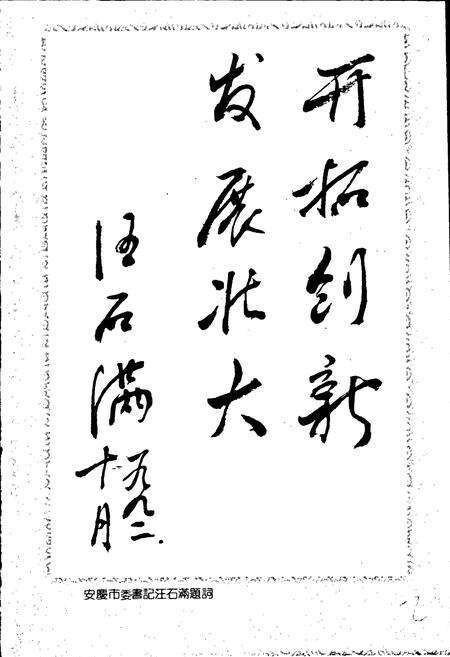 开拓创新
发展壮大
汪石满
一九九二.
十月
安慶市委書記汪石滿題詞